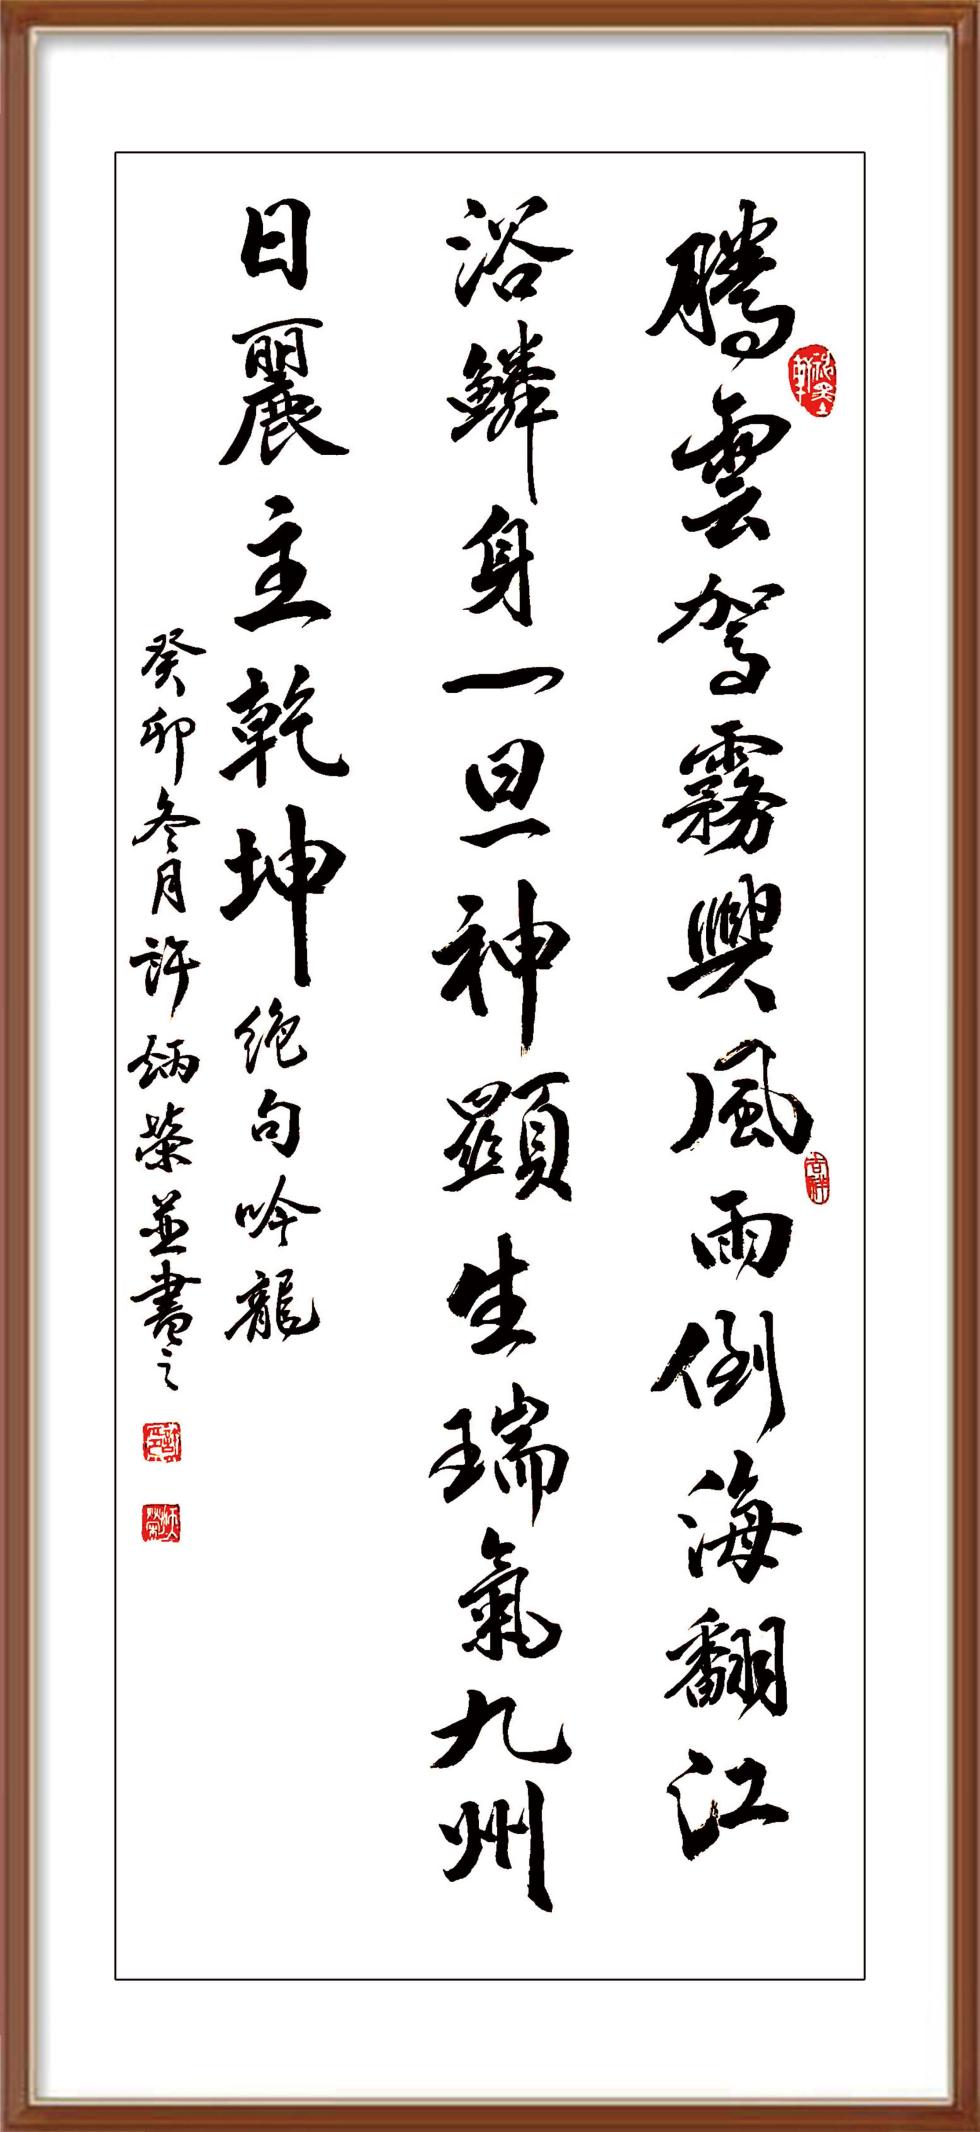 騰雲駕霧興風雨倒海翻江
浴鱗身一旦神顯生瑞氣九州
日麗主乾坤絕句吟龍
癸卯冬月許炳榮並書之
吉祥
許印
炳榮